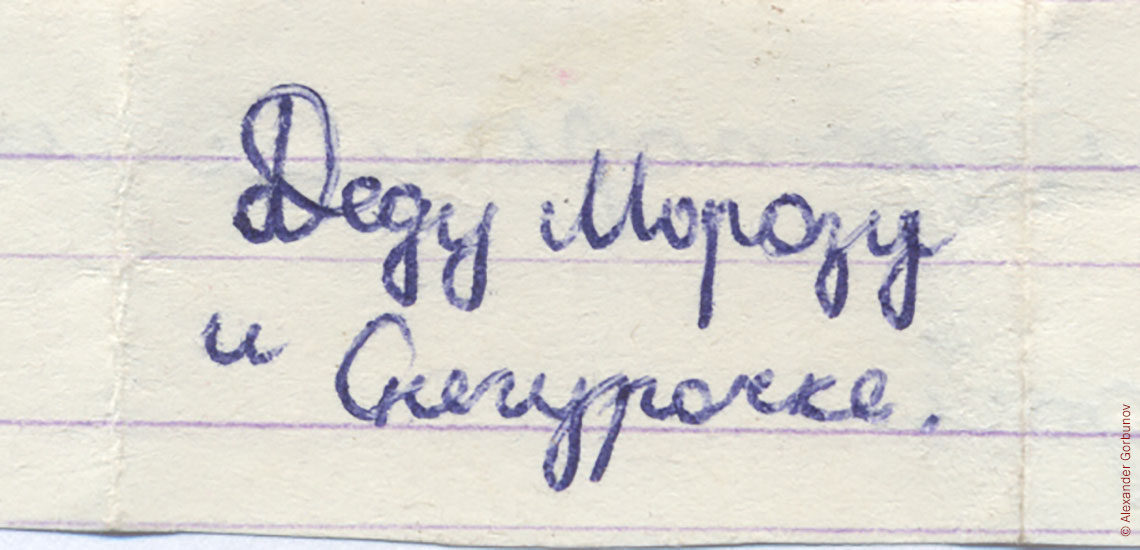 Деду Морозу
и Снегурочке.
© Alexander Gorbunov